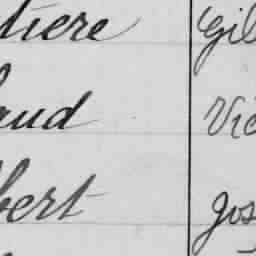 tiere Gil
aud Vic
bert Jos